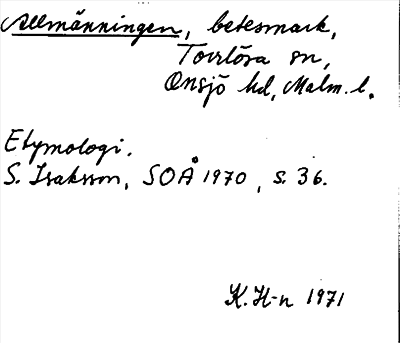 Allmänningen, betesmark,
Torrlösa sn,
Onsjö hd, Malm. l.
Etymologi.
S. Isaksson, SOÅ 1970, s. 36.
K. H-n 1971